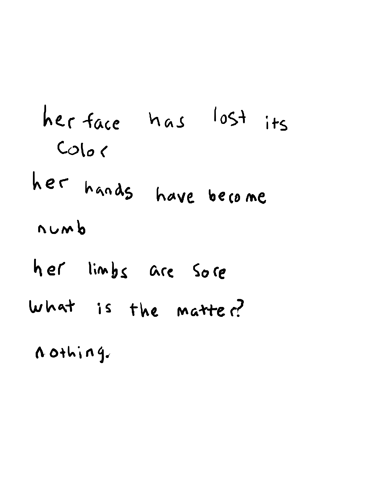 her face has lost its
color
her hands have become
numb
her limbs are sore
what is the matter?
nothing.